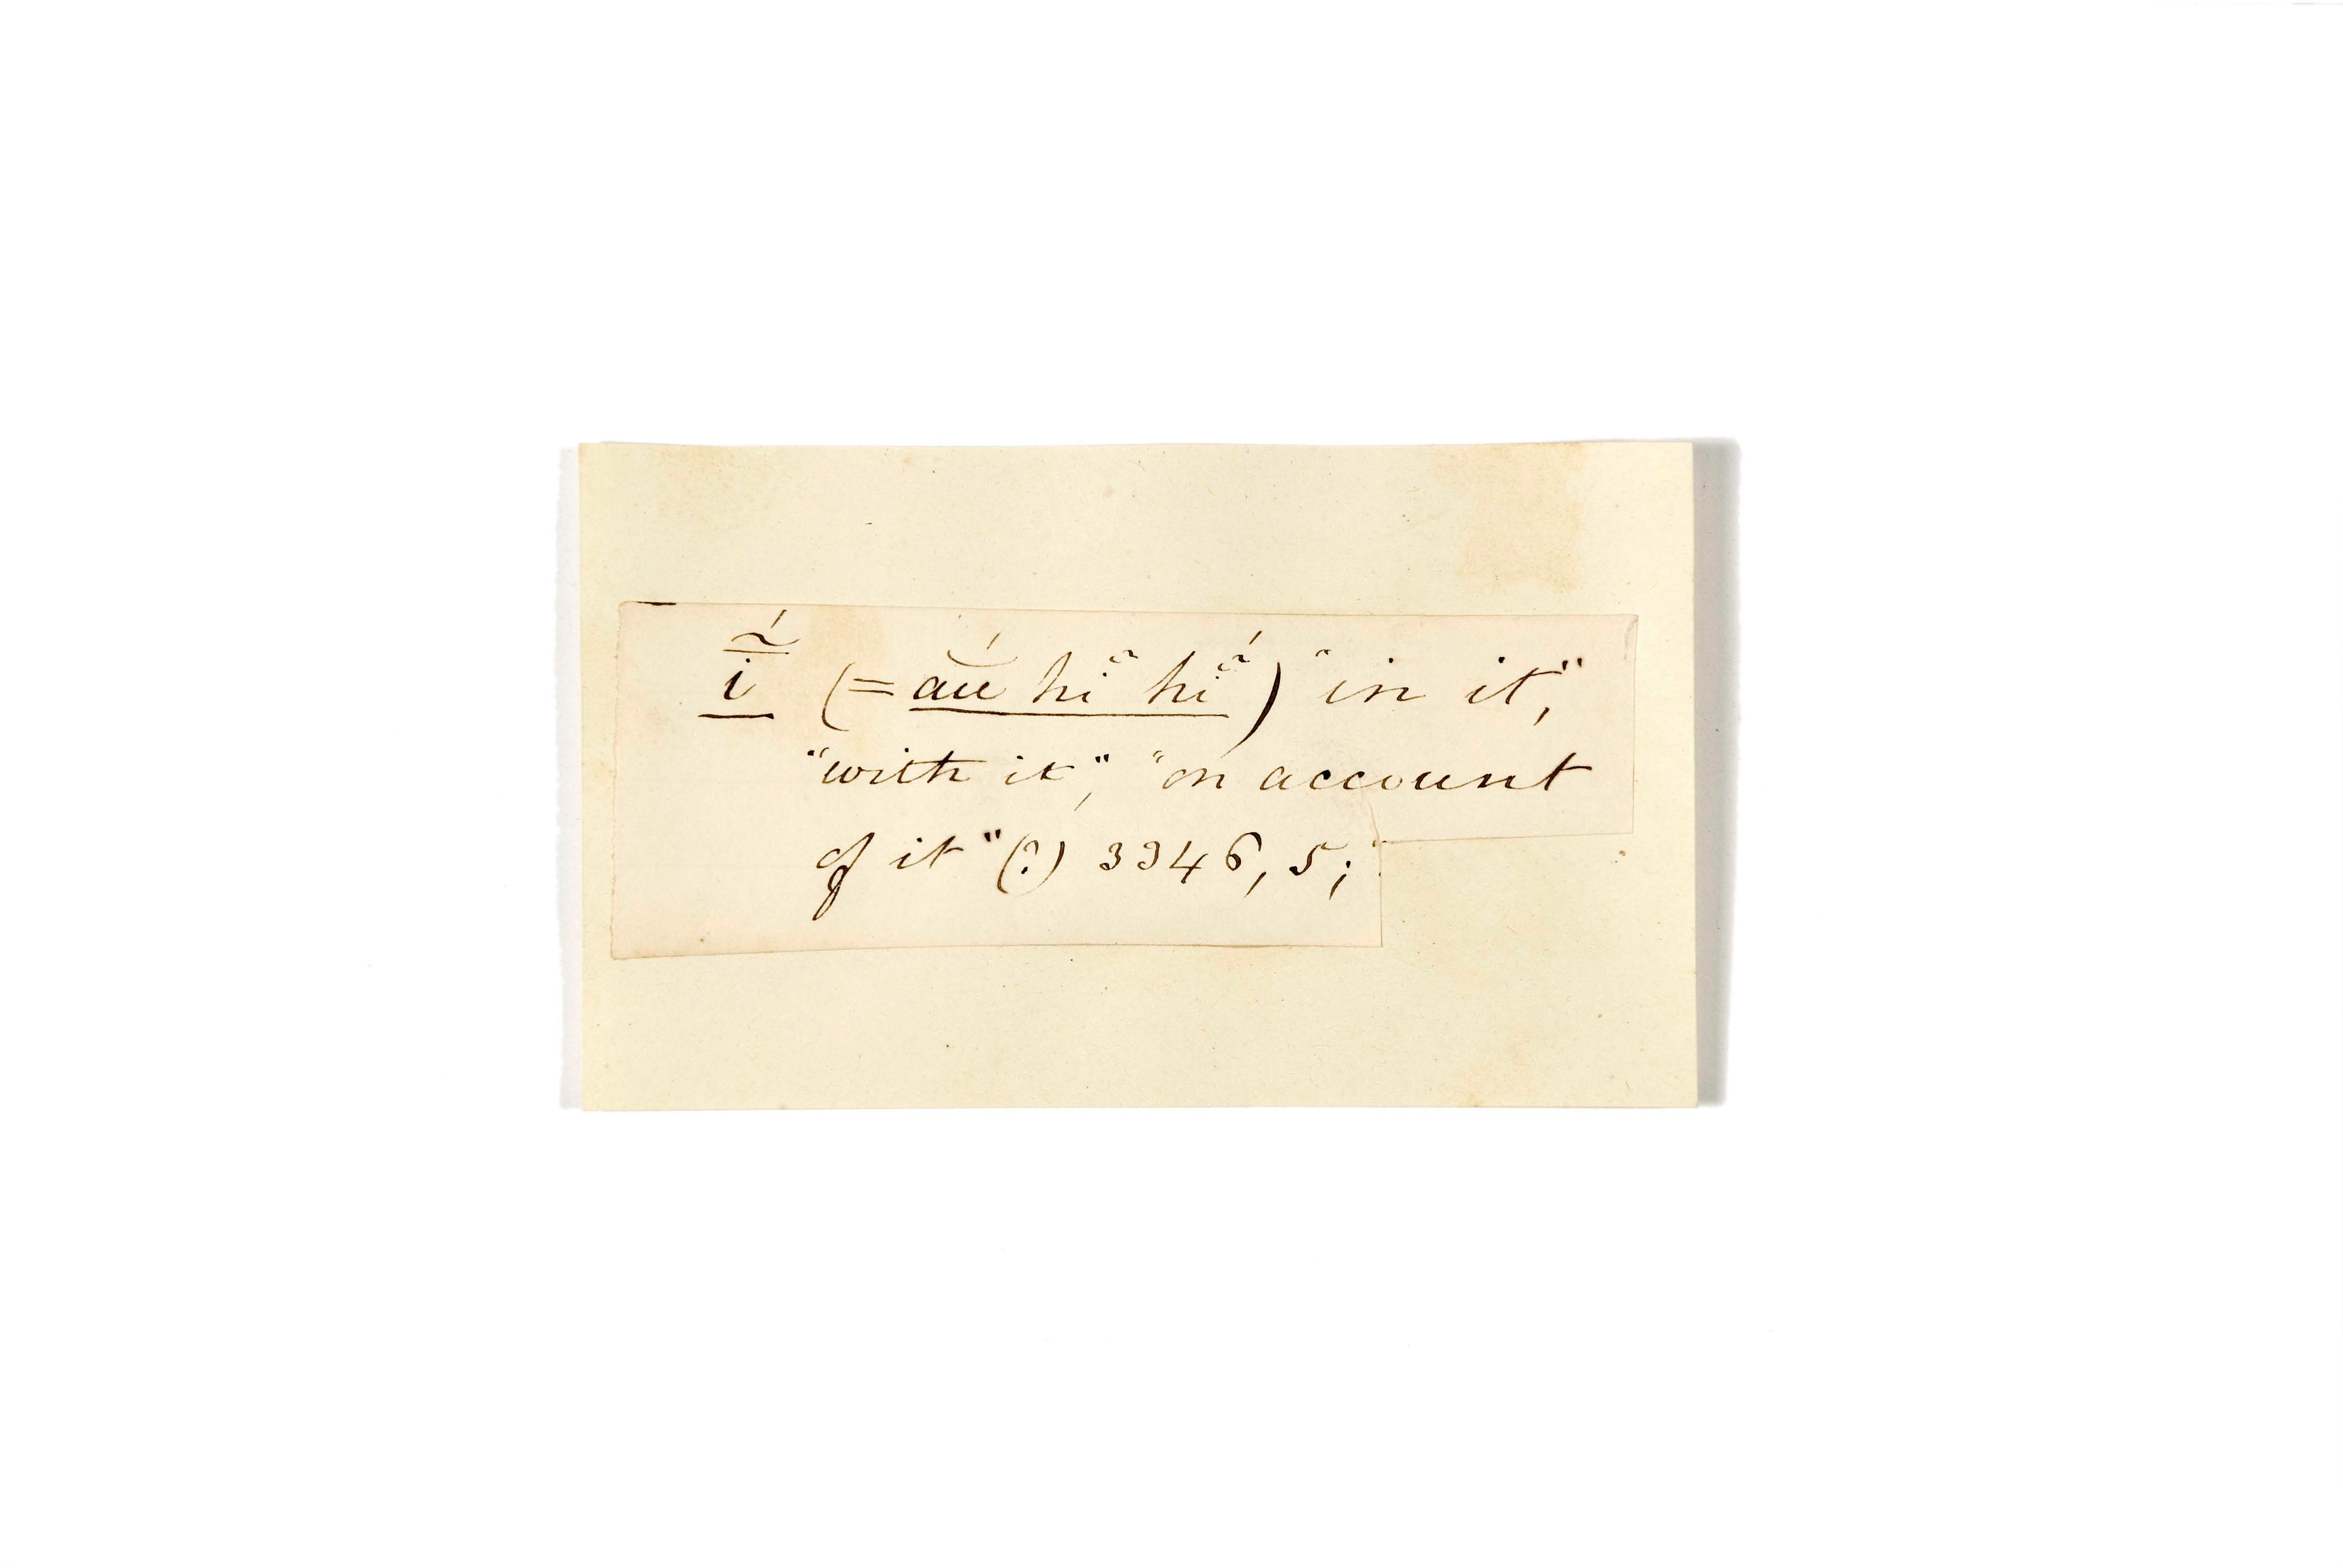 ī̃́ (= aú hiⁿ hiⁿ́) "in it",
"with it", "on account
of it" (?) 3346, 5;